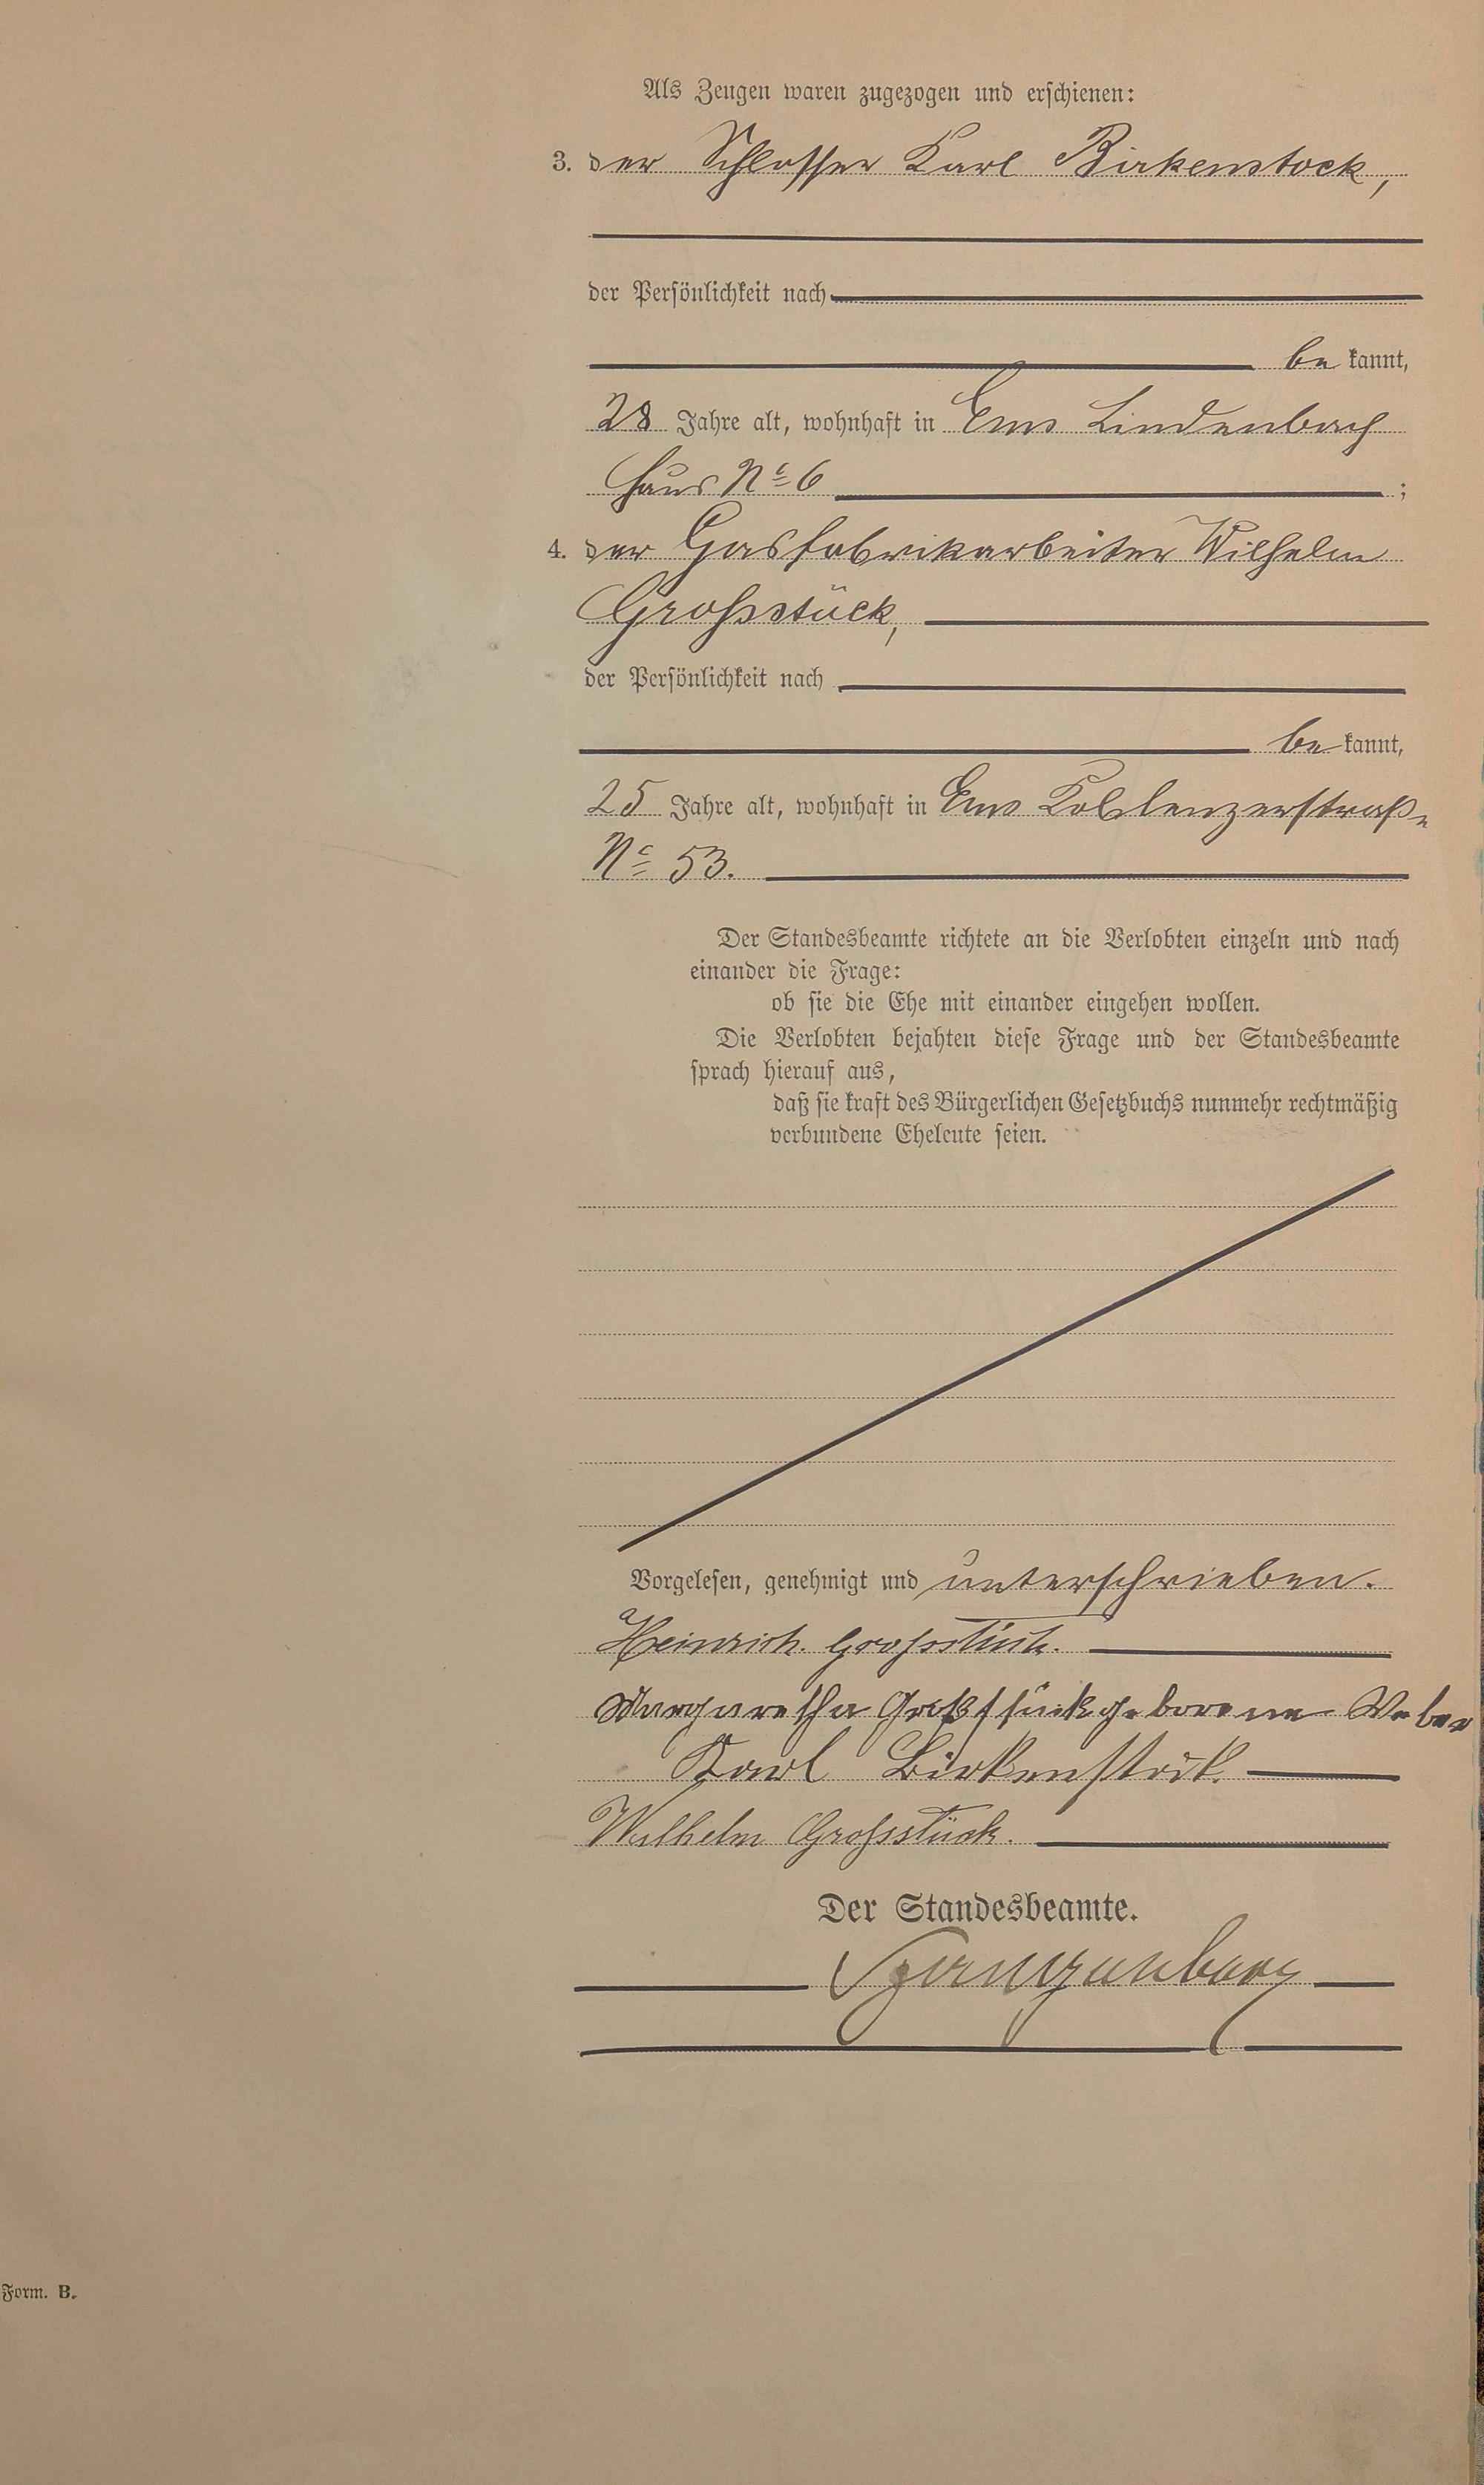 Als Zeugen waren zugezogen und erschienen:
3. der Schlosser Karl Birkenstock,
der Persönlichkeit nach
be kannt,
28 Jahre alt, wohnhaft in Ems Lindenbach
Haus No 6 ;
4. der Gasfabrikarbeiter Wilhelm
Großstück,
der Persönlichkeit nach
be kannt,
25 Jahre alt, wohnhaft in Ems Koblenzerstraße
No 53.
Der Standesbeamte richtete an die Verlobten einzeln und nach
einander die Frage:
ob sie die Ehe mit einander eingehen wollen.
Die Verlobten bejahten diese Frage und der Standesbeamte
sprach hierauf aus,
daß sie kraft des Bürgerlichen Gesetzbuchs nunmehr rechtmäßig
verbundene Eheleute seien.
Vorgelesen, genehmigt und unterschrieben.
Heinrich Großstück.
Margaretha Großstück geborene Weber
Karl Birkenstock.
Wilhelm Großstück.
Der Standesbeamte.
Form. B.